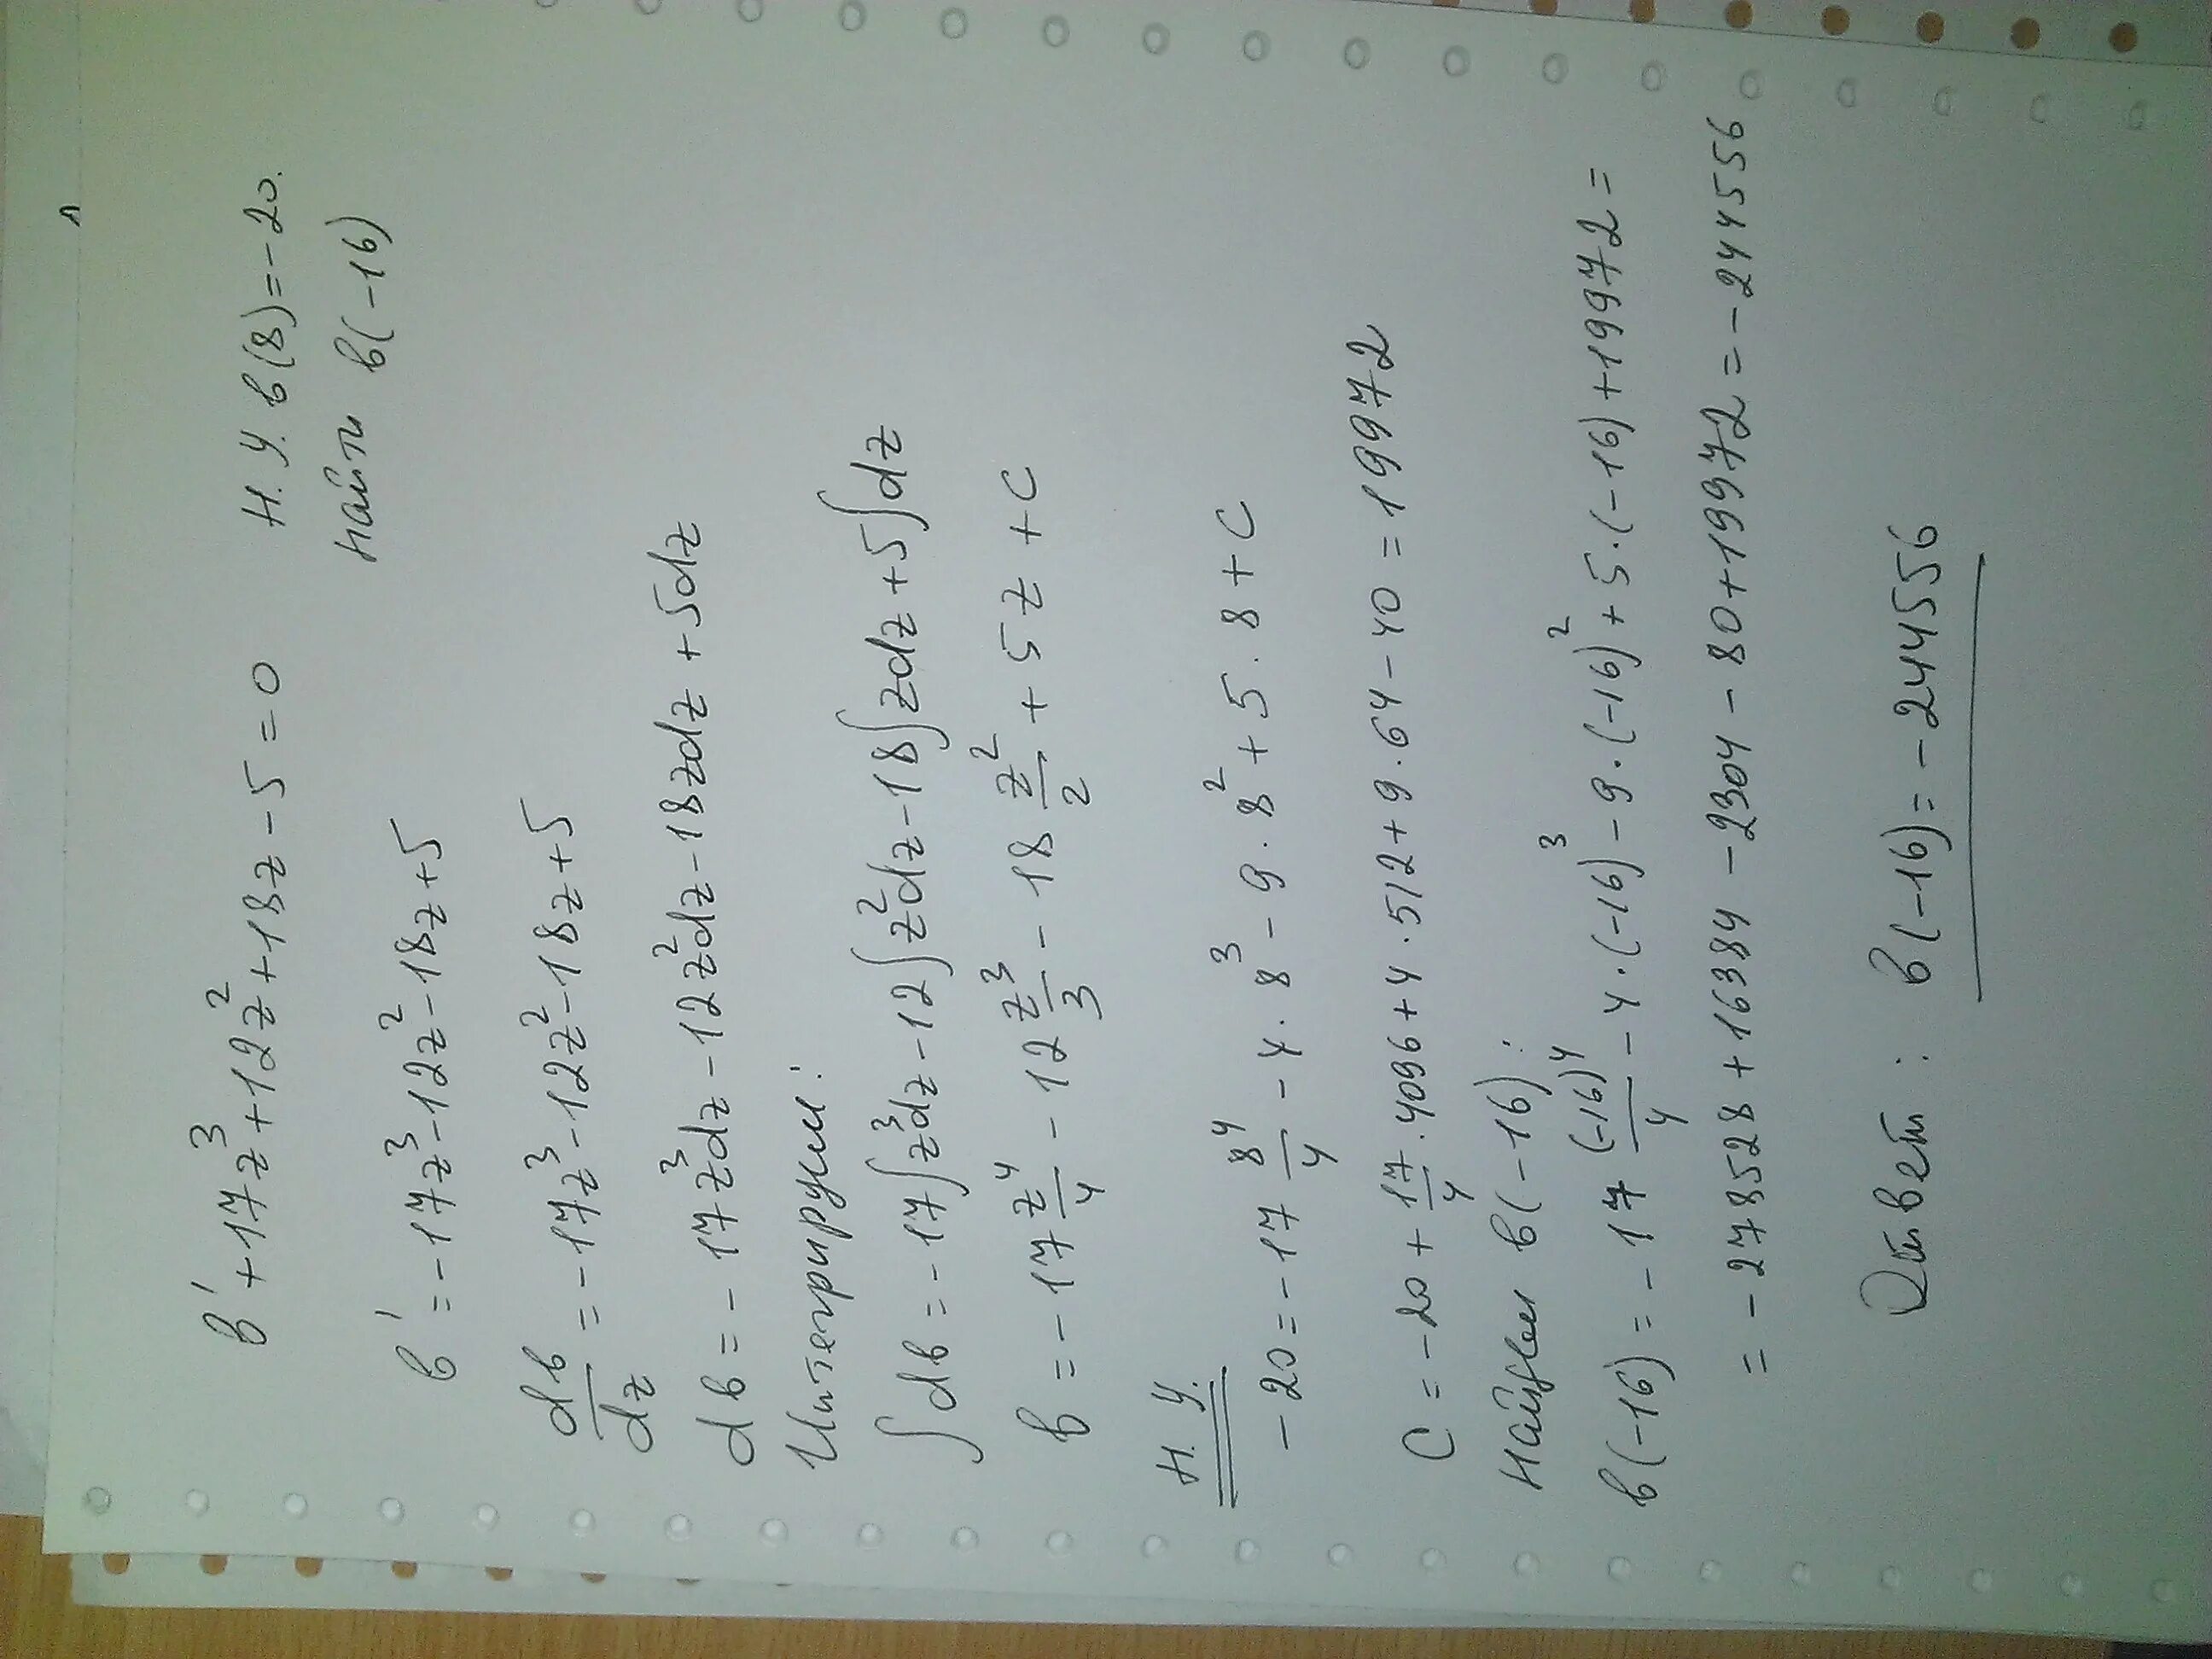 в' + 17z³ + 12z² + 18z − 5 = 0 Н.У. в(8) = −20.
Найти в(−16)
в' = −17z³ − 12z² − 18z + 5
dв/dz = −17z³ − 12z² − 18z + 5
dв = −17z³dz − 12z²dz − 18zdz + 5dz
Интегрируем:
∫dв = −17∫z³dz − 12∫z²dz − 18∫zdz + 5∫dz
в = −17 z⁴/4 − 12 z³/3 − 18 z²/2 + 5z + C
Н.У.
−20 = −17 8⁴/4 − 4·8³ − 9·8² + 5·8 + C
C = −20 + 17/4·4096 + 4·512 + 9·64 − 40 = 19972
Найдем в(−16):
в(−16) = −17 (−16)⁴/4 − 4·(−16)³ − 9·(−16)² + 5·(−16) + 19972 =
= −278528 + 16384 − 2304 − 80 + 19972 = −244556
Ответ: в(−16) = −244556